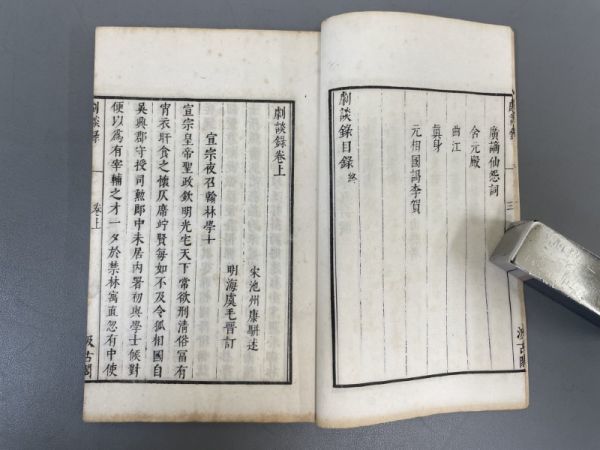 劇談錄
三
廣謫仙怨詞
含元殿
曲江
真身
元相國謁李賀
劇談錄目錄終
汲古閣
劇談錄卷上
宋池州康駢述
明海虞毛晉訂
宣宗夜召翰林學士
宣宗皇帝聖政欽明光宅天下常欲刑清俗富有
宵衣旰食之懷仄席竚賢每如不及令狐相國自
吳興郡守授司勲郎中未居內署初與學士候對
便以爲有宰輔之才一夕於禁林寓直忽有中使
劇談錄
卷上
汲古閣